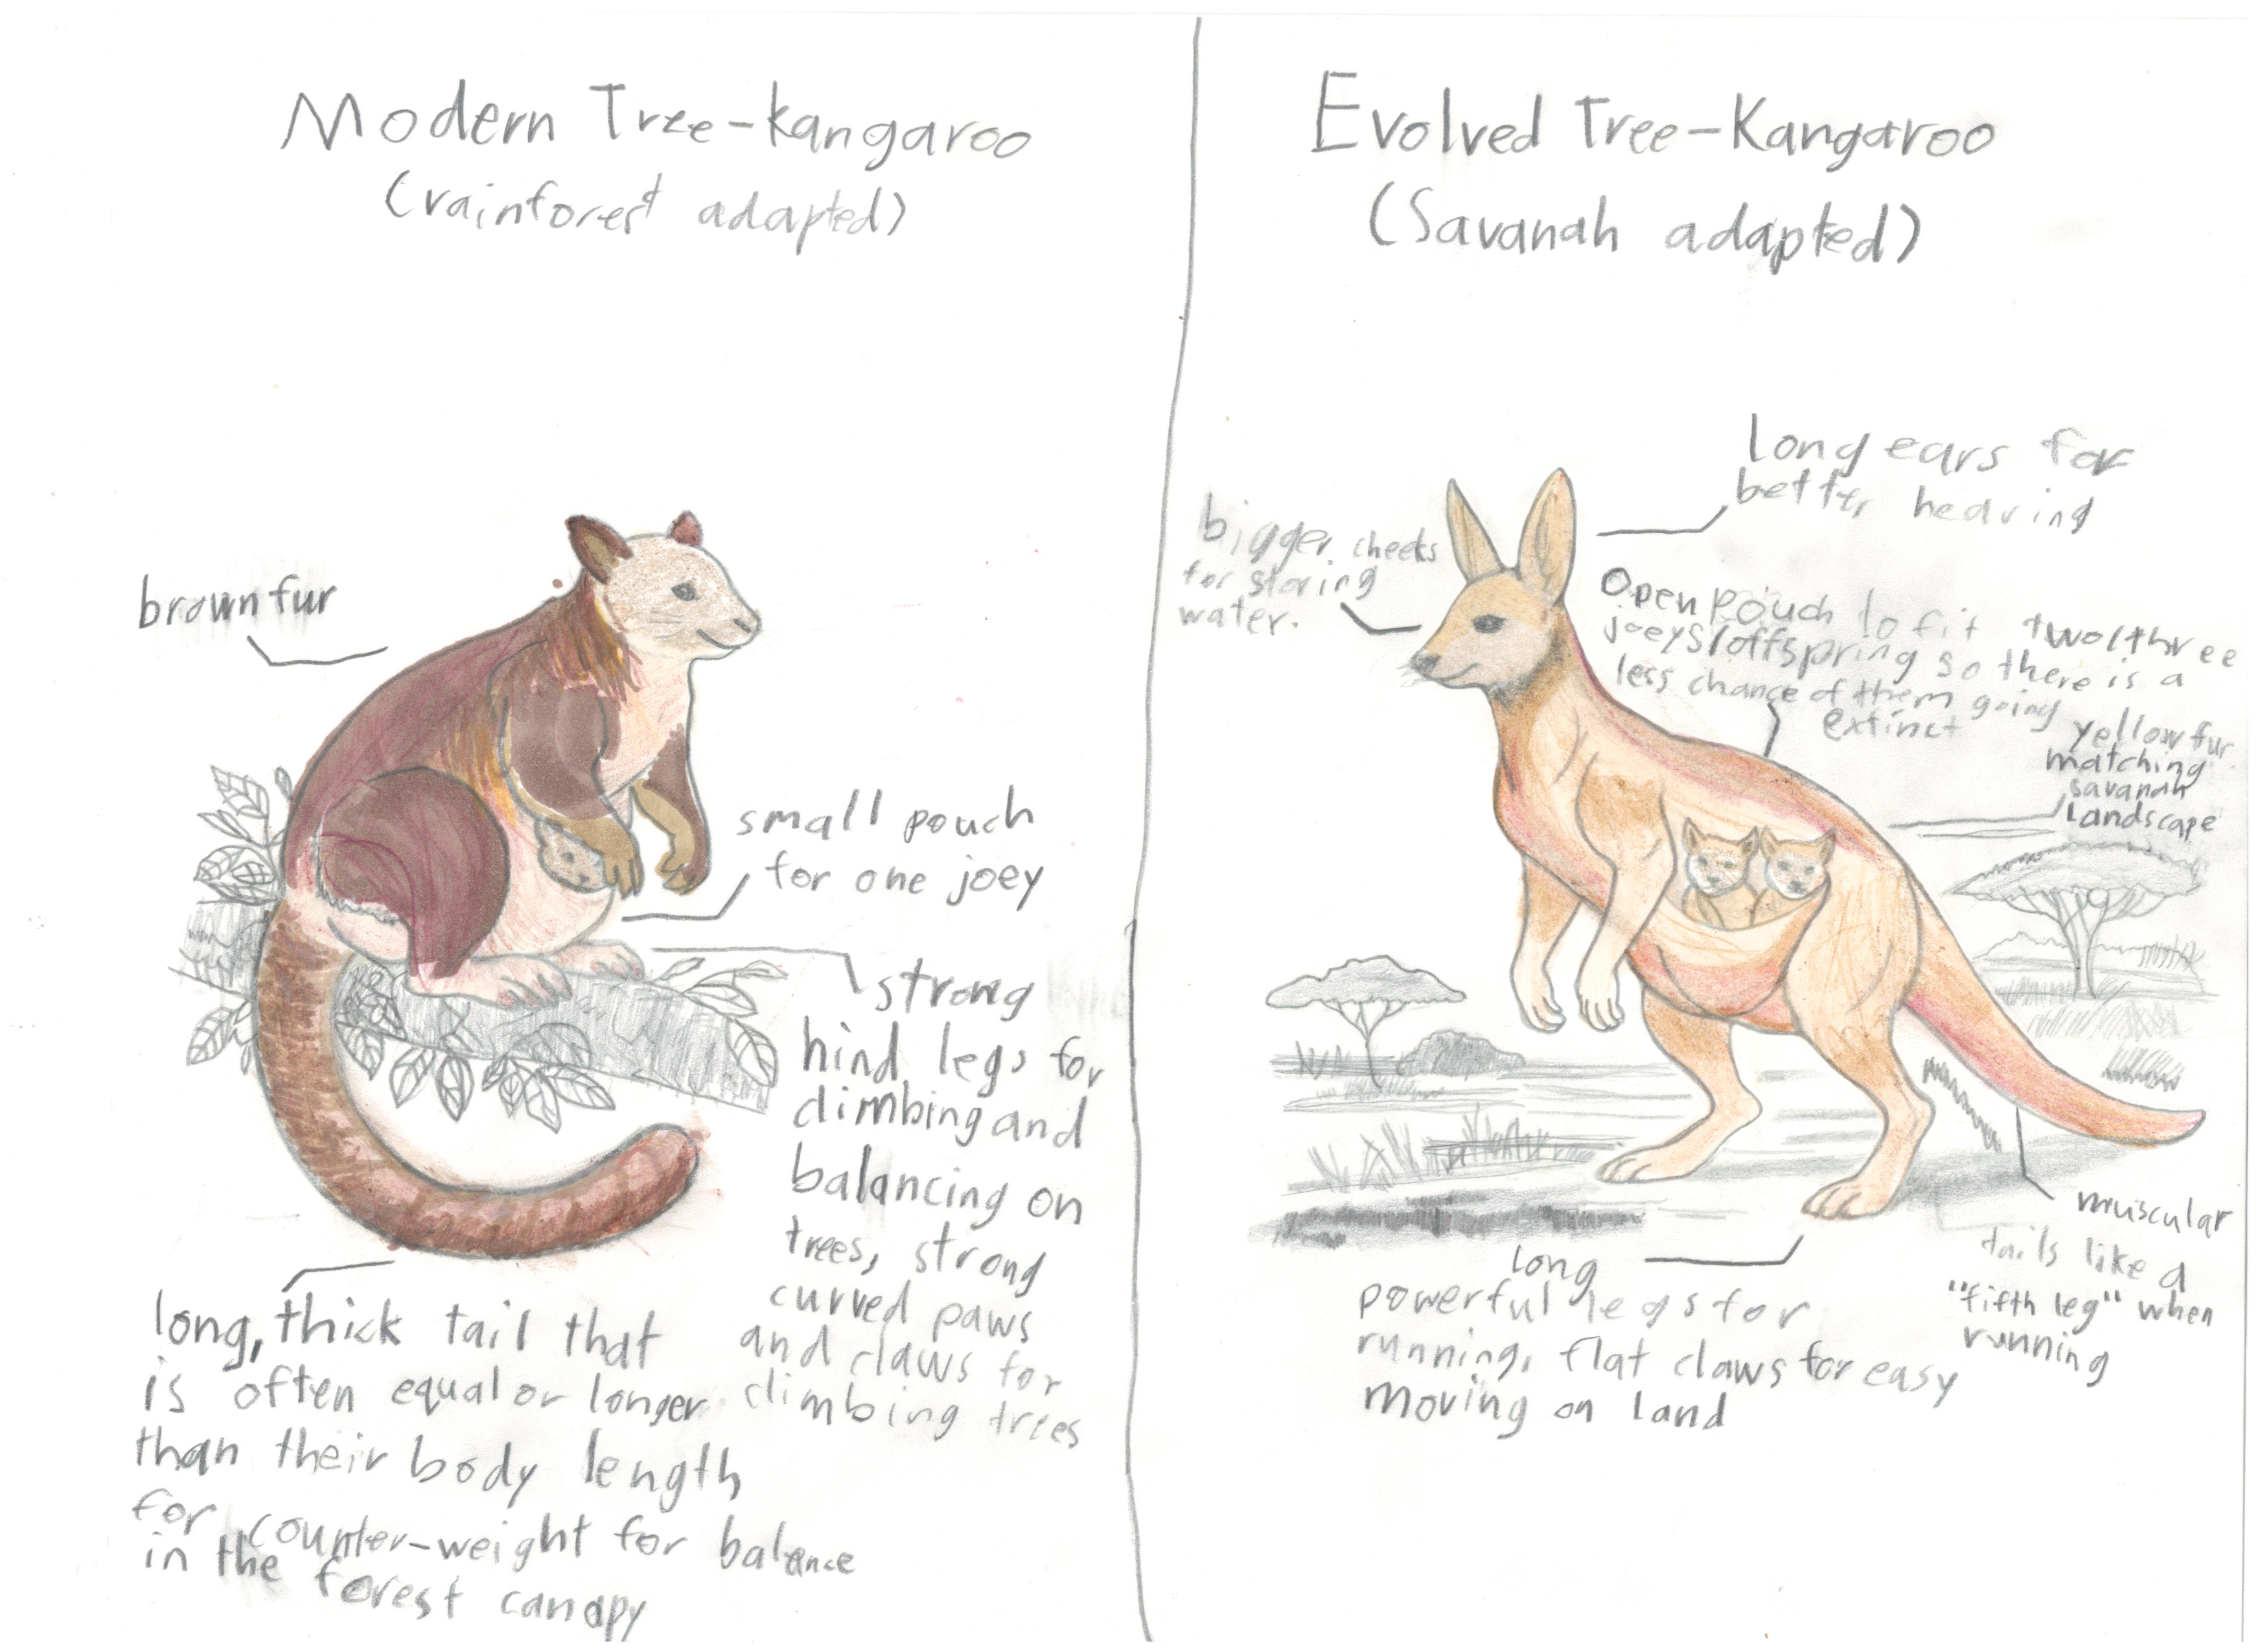 Modern Tree-kangaroo
(rainforest adapted)
brown fur
small pouch
for one joey
strong
hind legs for
climbing and
balancing on
trees, strong
curved paws
and claws for
climbing trees
long, thick tail that
is often equal or longer
than their body length
for counter-weight for balance
in the forest canapy
Evolved Tree-Kangaroo
(Savanah adapted)
long ears for
better hearing
bigger cheeks
for storing
water.
Open pouch to fit two/three
joeys/offspring so there is a
less chance of them going
extinct
yellow fur
matching
savanah
landscape
muscular
tails like a
"fifth leg" when
running
long
powerful legs for
running, flat claws for easy
moving on land